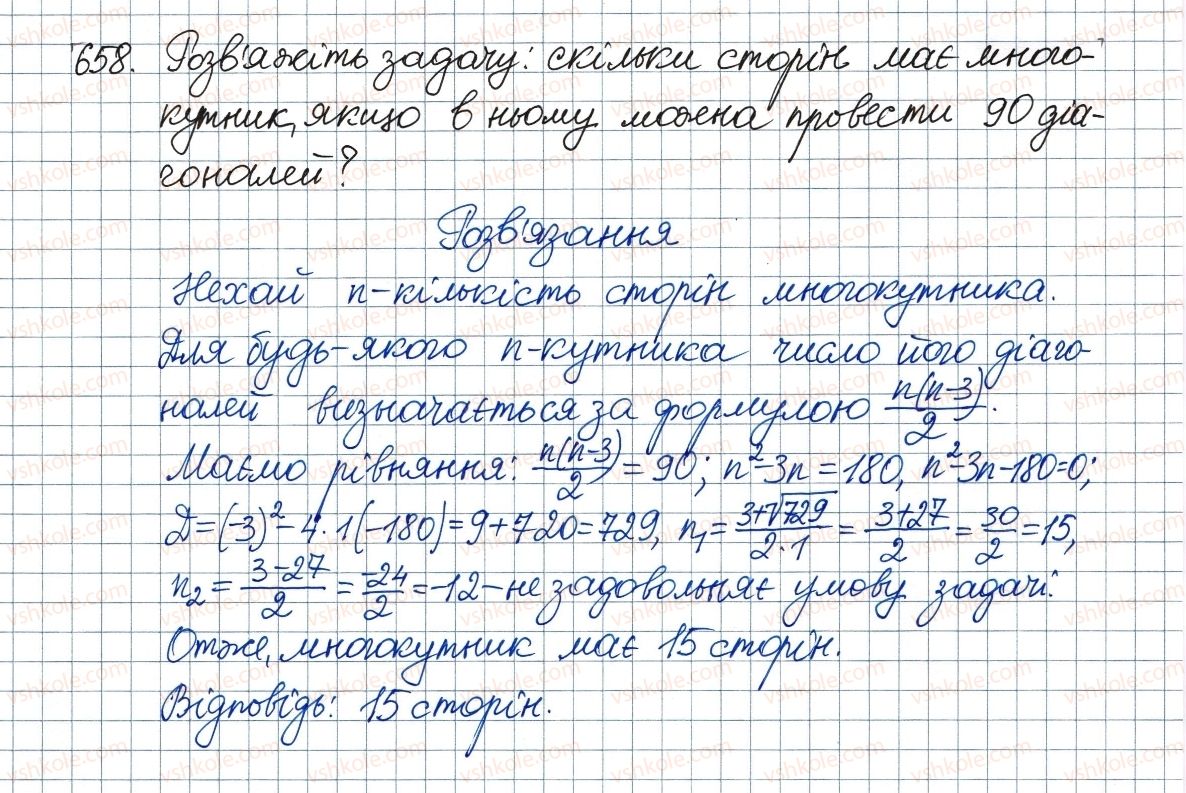 658. Розв'яжіть задачу: скільки сторін має много-
кутник, якщо в ньому можна провести 90 діа-
гоналей?
Розв'язання
Нехай n - кількість сторін многокутника.
Для будь-якого n-кутника число його діаго-
налей визначається за формулою n(n-3)/2.
Маємо рівняння: n(n-3)/2 = 90; n²-3n=180, n²-3n-180=0;
D=(-3)²-4·1(-180)=9+720=729, n₁=(3+√729)/(2·1)=(3+27)/2=30/2=15,
n₂=(3-27)/2=-24/2=-12-не задовольняє умову задачі.
Отже, многокутник має 15 сторін.
Відповідь: 15 сторін.
vshkole.com